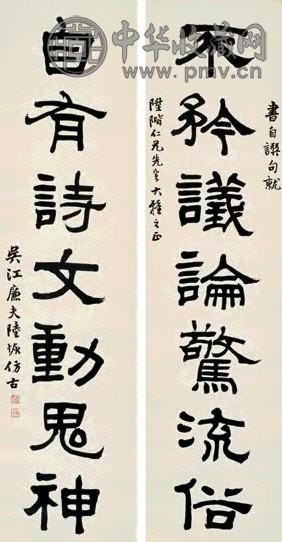 中华收藏网
www.pmv.cn
書自譔句就
不矜議論驚流俗
陞階仁兄先生大雅之正
自有詩文動鬼神
吳江廉夫陸恢仿古